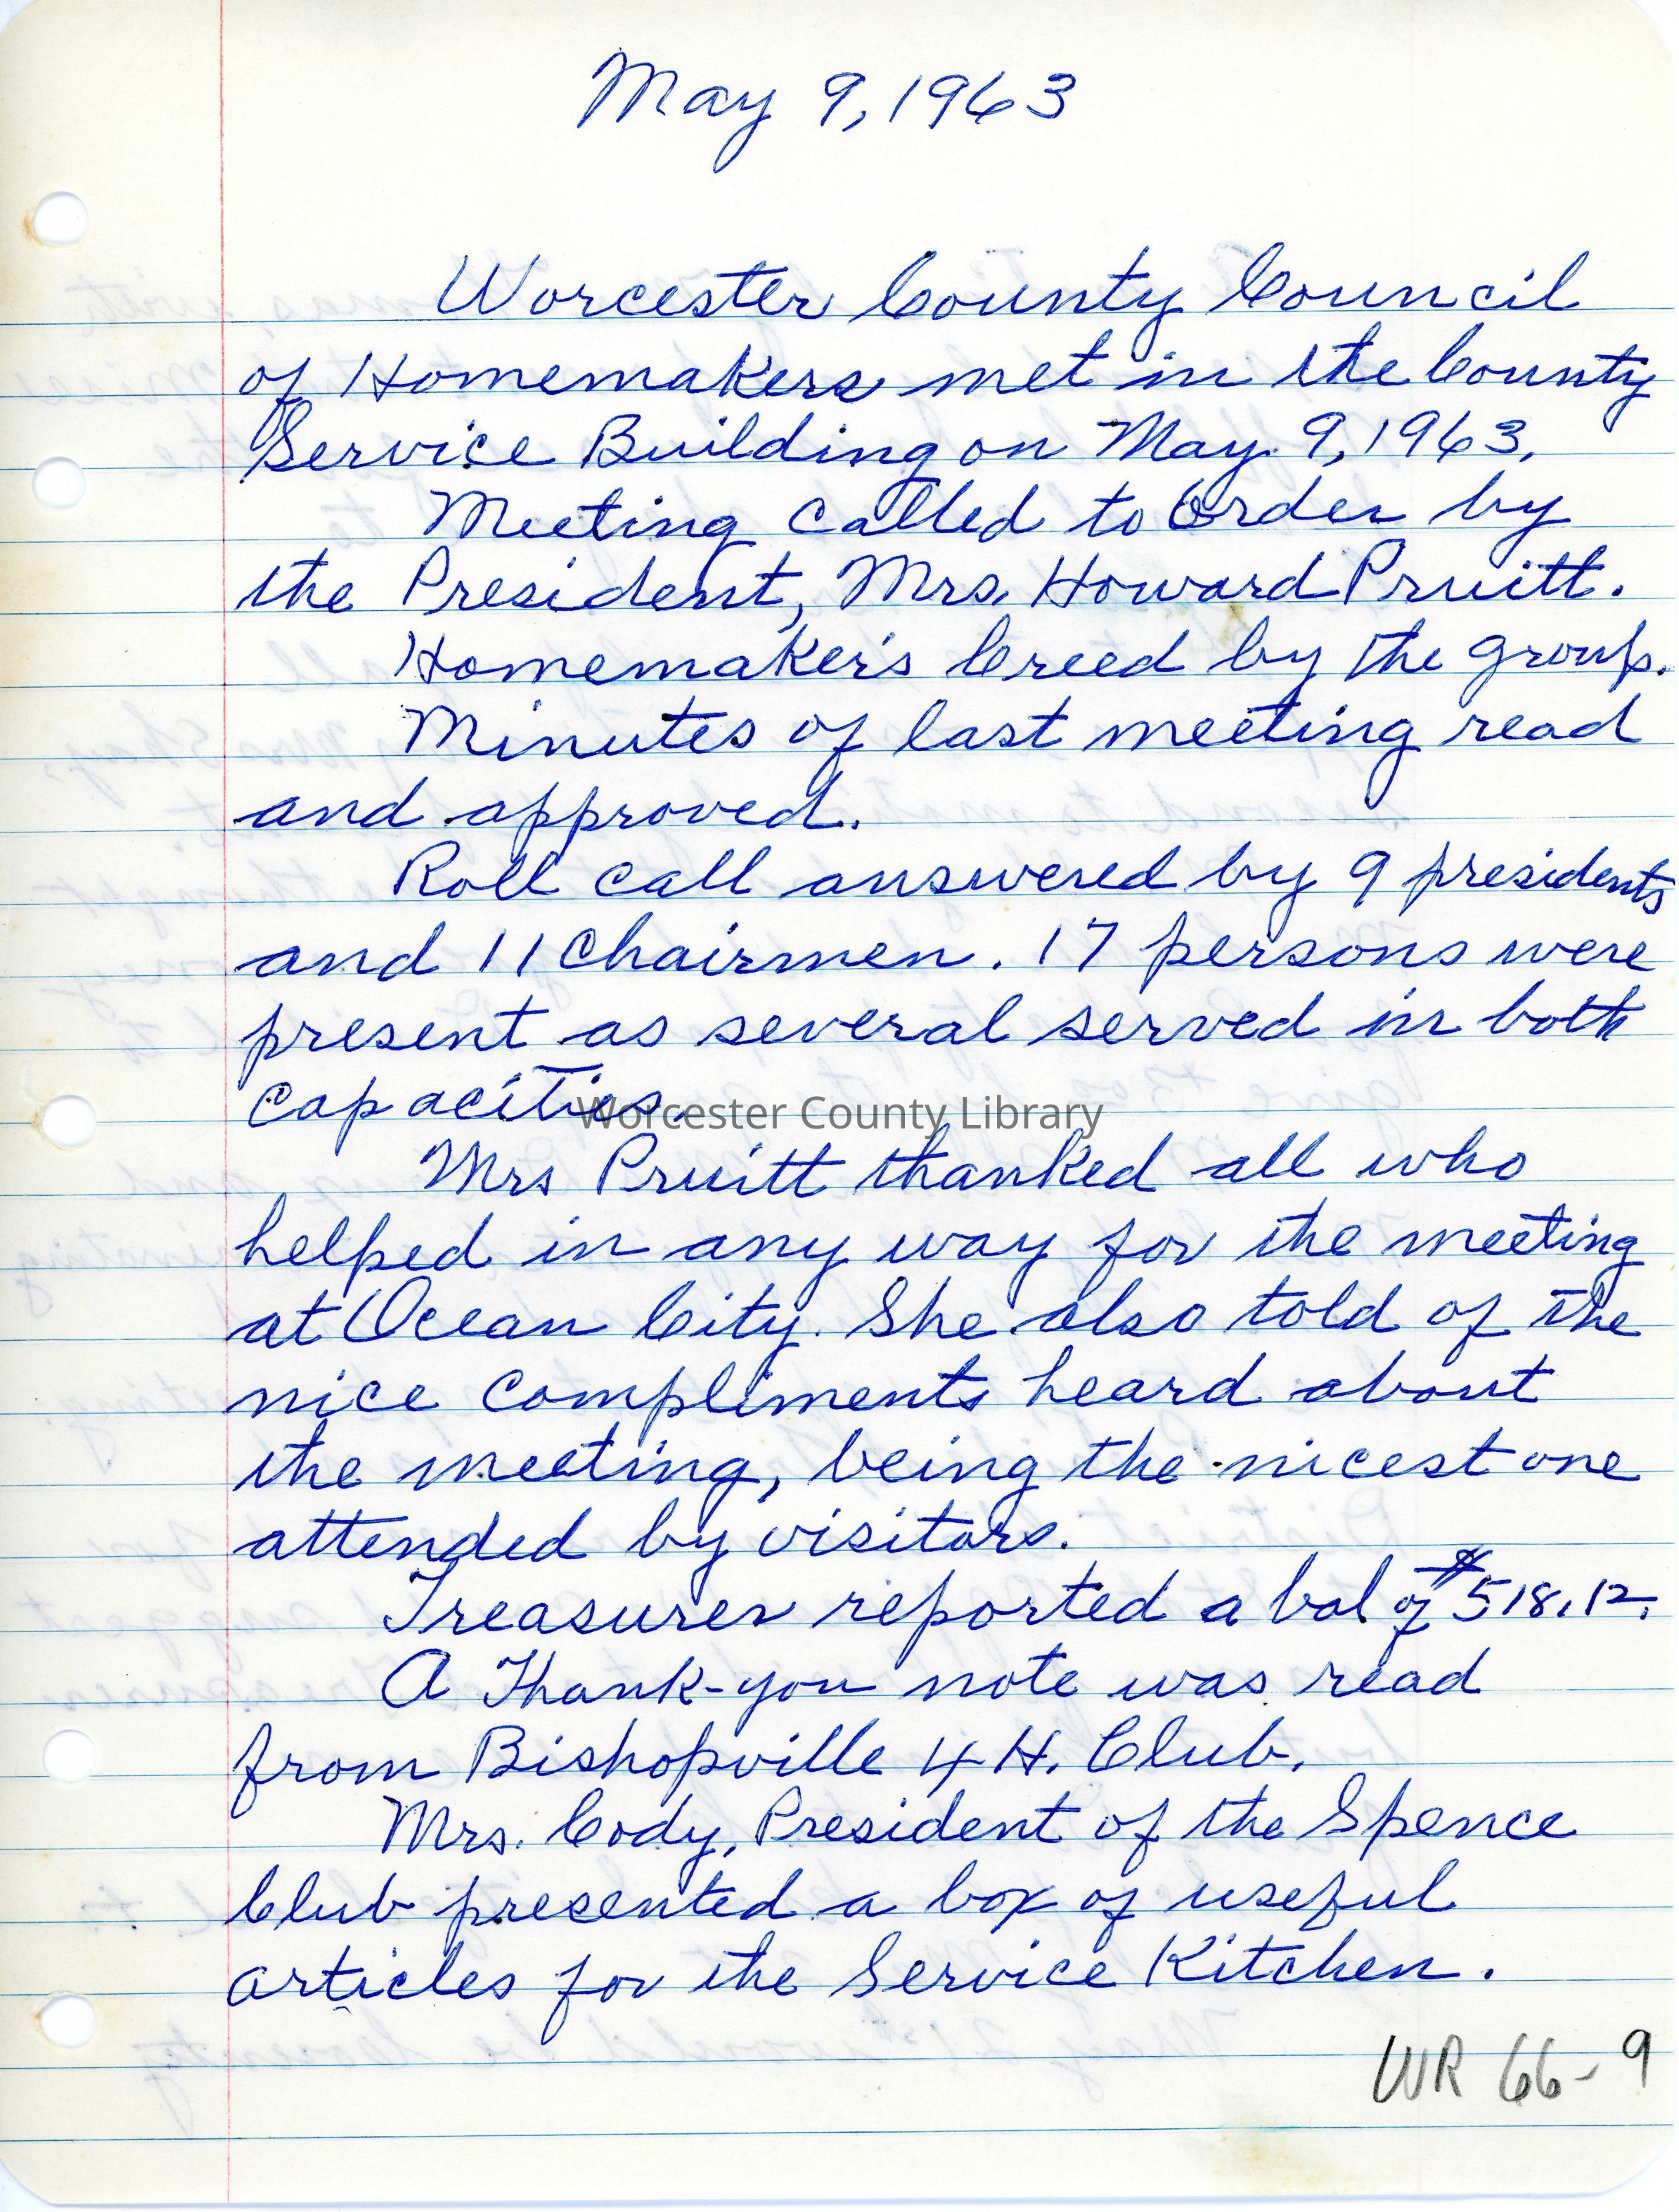 May 9, 1963
Worcester County Council
of Homemakers met in the County
Service Building on May 9, 1963.
Meeting called to Order by
the President, Mrs. Howard Pruitt.
Homemaker's Creed by the group.
Minutes of last meeting read
and approved.
Roll call answered by 9 presidents
and 11 Chairmen. 17 persons were
present as several served in both
capacities.
Worcester County Library
Mrs Pruitt thanked all who
helped in any way for the meeting
at Ocean City. She also told of the
nice compliments heard about
the meeting, being the nicest one
attended by visitors.
Treasurer reported a bal of $518.12.
A Thank-you note was read
from Bishopville 4 H. Club.
Mrs. Cody, President of the Spence
Club presented a box of useful
articles for the Service Kitchen.
WR 66-9